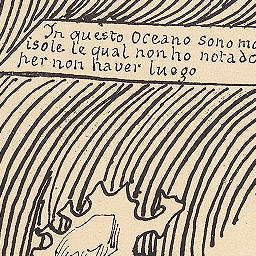 In questo Oceano sono mo
isole le qual non ho notado
per non haver luogo